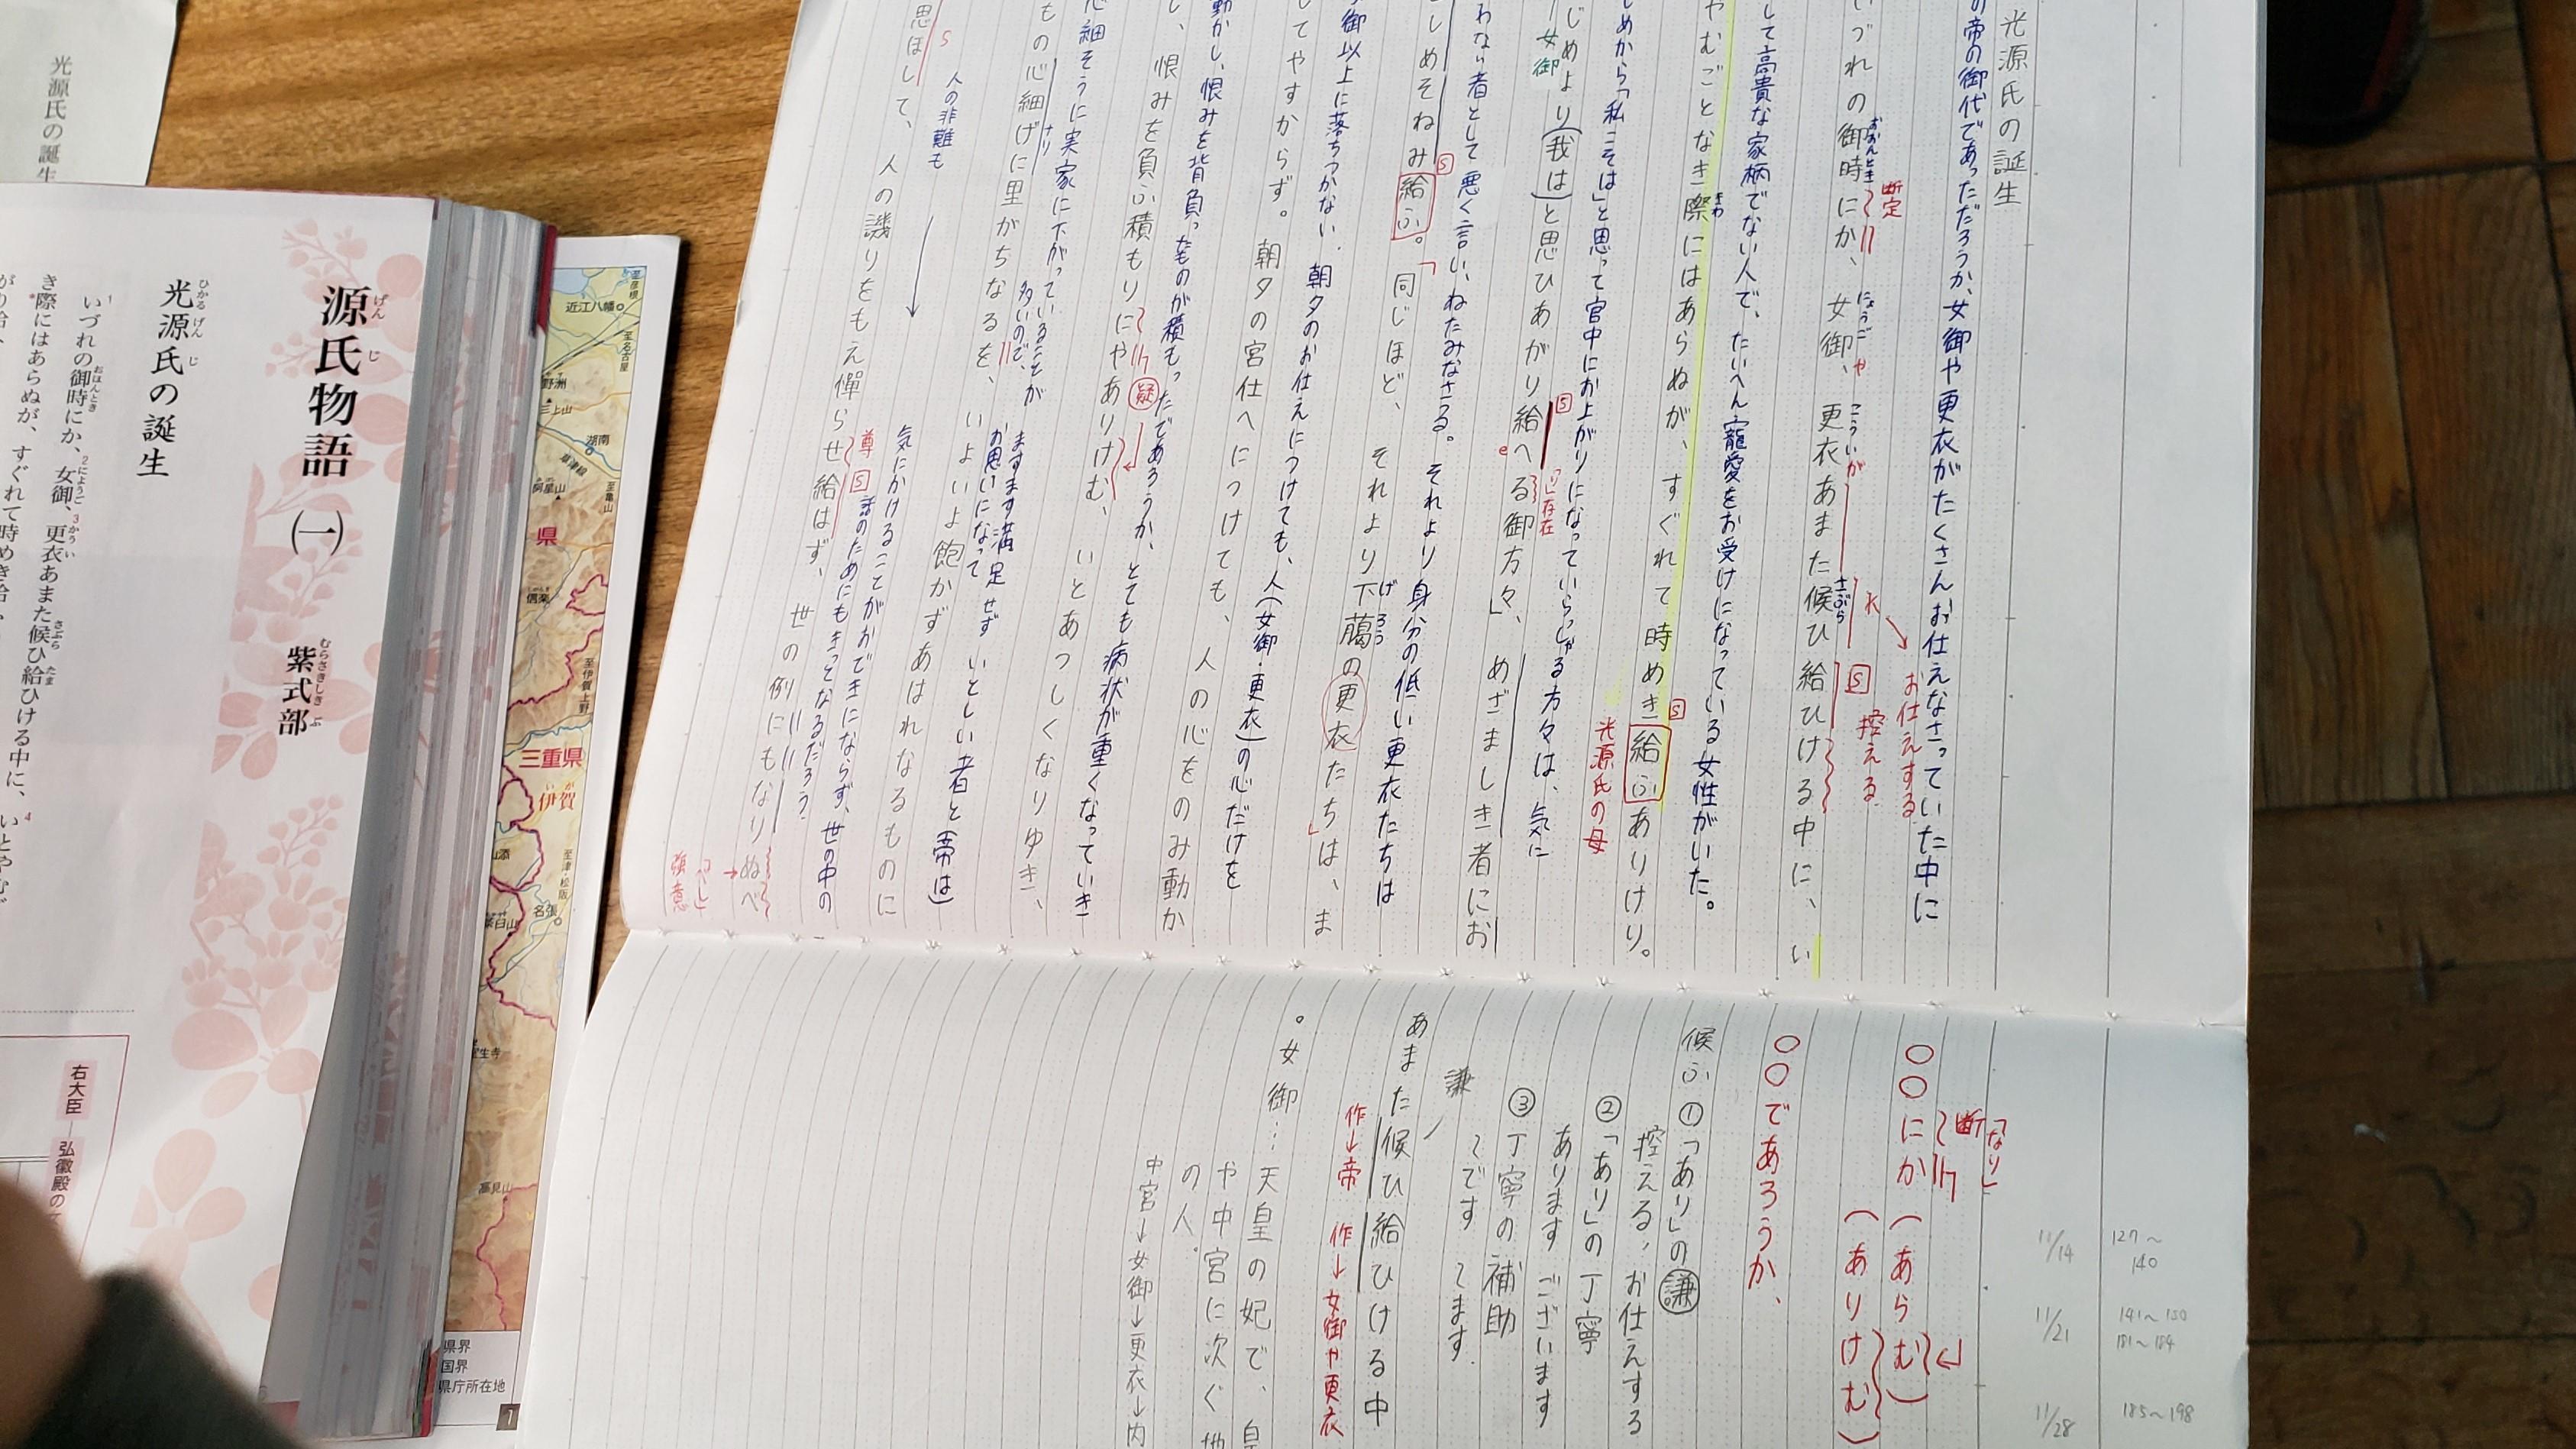 光源氏の誕生
の帝の御代であっただろうか、女御や更衣がたくさんお仕えなさっていた中に
断定
おおんとき にょうご や こうい が さぶら
いづれの御時にか、女御、更衣あまた候ひ給ひける中に、い
S 控える
お仕えする
して高貴な家柄でない人で、たいへん寵愛をお受けになっている女性がいた。
きわ
やむごとなき際にはあらぬが、すぐれて時めき給ふありけり。
S
光源氏の母
じめから「私こそは」と思って宮中にお上がりになっていらっしゃる方々は、気に
じめより(我は)と思ひあがり給へる御方々、めざましき者にお
女御
S
e
「り」存在
わない者として悪く言い、ねたみなさる。それより身分の低い更衣たちは
としめそねみ給ふ。「同じほど、それより下﨟の更衣たちは、ま
S
げろう
御以上に落ちつかない、朝夕のお仕えにつけても、人(女御・更衣)の心だけを
してやすからず。朝夕の宮仕へにつけても、人の心をのみ動か
動かし、恨みを背負ったものが積もったであろうか、とても病状が重くなっていき
し、恨みを負ふ積もりにやありけむ、いとあつしくなりゆき、
疑
心細そうに実家に下がっていることが
多いので、
ますます満足せず いとしい者と(帝は)
お思いになって
もの心細げに里がちなるを、いよいよ飽かずあはれなるものに
ナリ
S
人の非難も
気にかけることがおできにならず、世の中の
思ほして、人の譏りをもえ憚らせ給はず、世の例にもなりぬべ
尊 S
話のためにもきっとなるだろう。
「べし」
強意
「なり」
断
〇〇にか(あらむ)
(ありけむ)
〇〇であろうか、
候ふ ①「あり」の謙
控える、お仕えする
②「あり」の丁寧
あります ございます
③丁寧の補助
〜です 〜ます
謙
あまた候ひ給ひける中
作→帝 作→女御や更衣
。女御…天皇の妃で、皇
や中宮に次ぐ地
の人.
中宮→女御→更衣→内
127〜
140
11/14
141〜150
181〜184
11/21
185〜198
11/28
光源氏の誕生
源氏物語(一)
げんじ
紫式部
むらさきしきぶ
光源氏の誕生
ひかるげんじ
いづれの御時にか、女御、更衣あまた候ひ給ひける中に、いとやむご
き際にはあらぬが、すぐれて時めき給
右大臣
弘徽殿の
至彦根
近江八幡
至名古屋
野洲
三上山
湖南
草津線
阿星山
至亀山
県
信楽
至伊賀上野
三重県
伊賀
いが
至津・松阪
名張
茶臼山
室生寺
高見山
県界
国界
県庁所在地
1